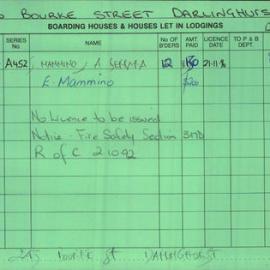 BOURKE STREET DARLINGHURS
BOARDING HOUSES & HOUSES LET IN LODGINGS
SERIES No NAME No OF B'DERS AMT. PAID LICENCE DATE TO P & B DEPT.
A452 MAMMINO / A 12 21-11
E. Mammino
No Licence to be issued
Notice - Fire Safety Section 317D
R of C 2 10 92